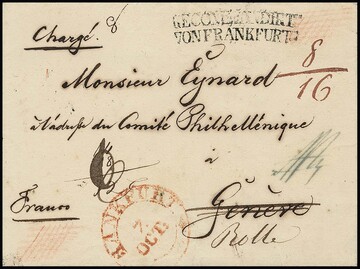 Chargé.
RECOMMANDIRT
VON FRANKFURT
8
16
Monsieur Eynard
à l'adresse du Comité Philhellénique
à
Franco
Genève
Rolle
FRANKFURT
7
OCT